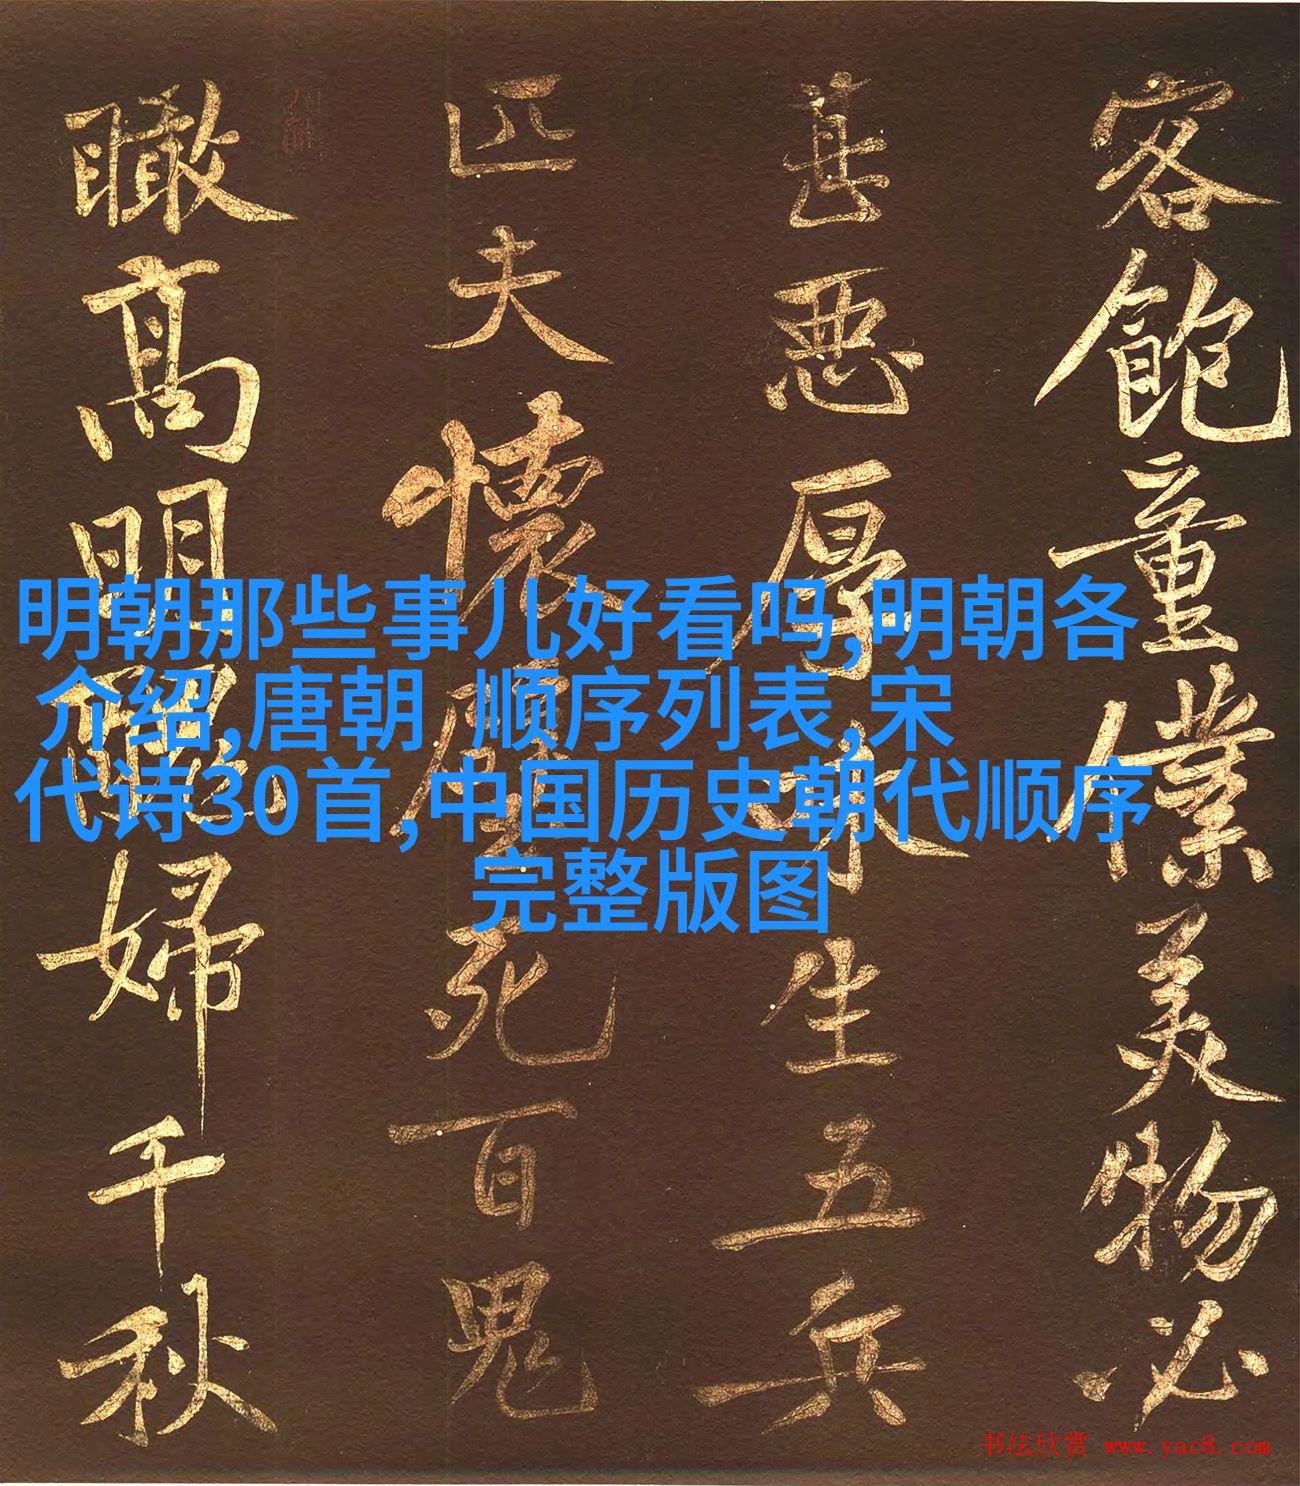 客飽童僕美物必
甚惡厚味生五兵
匹夫懷璧死百鬼
瞰高明醜婦千秋
明朝那些事儿好看吗,明朝各
介绍,唐朝 顺序列表,宋
代诗30首,中国历史朝代顺序
完整版图
书法欣赏 www.yac8.com